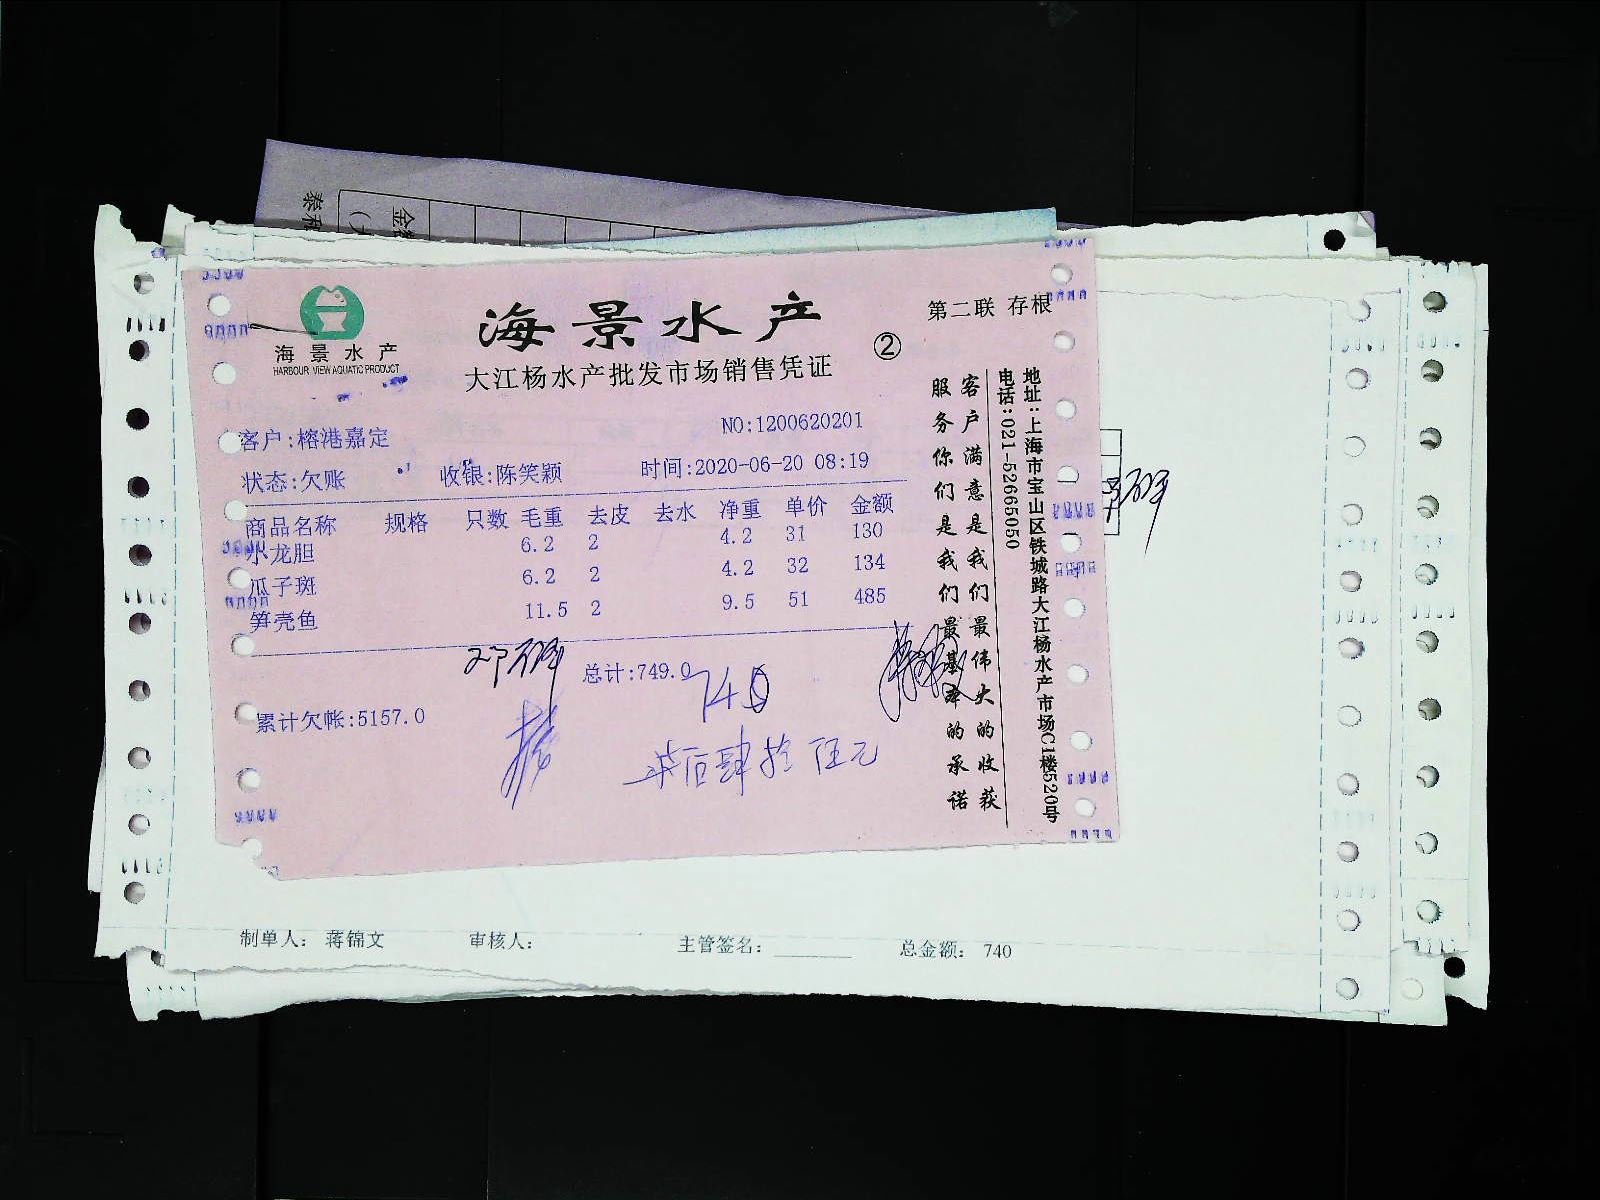 海景水产
HARBOUR VIEW AQUATIC PRODUCT
海景水产
②
第二联 存根
大江杨水产批发市场销售凭证
NO:1200620201
客户:榕港嘉定
状态:欠账 收银:陈笑颖 时间:2020-06-20 08:19
商品名称 规格 只数 毛重 去皮 去水 净重 单价 金额
小龙胆 6.2 2 4.2 31 130
瓜子斑 6.2 2 4.2 32 134
笋壳鱼 11.5 2 9.5 51 485
总计:749.0
累计欠帐:5157.0
柒佰肆拾伍元
客户满意是我们最伟大的收获
服务你们是我们最基本的承诺
地址:上海市宝山区铁城路大江杨水产市场C1楼520号
电话:021-52665050
制单人: 蒋锦文 审核人: 主管签名: 总金额: 740